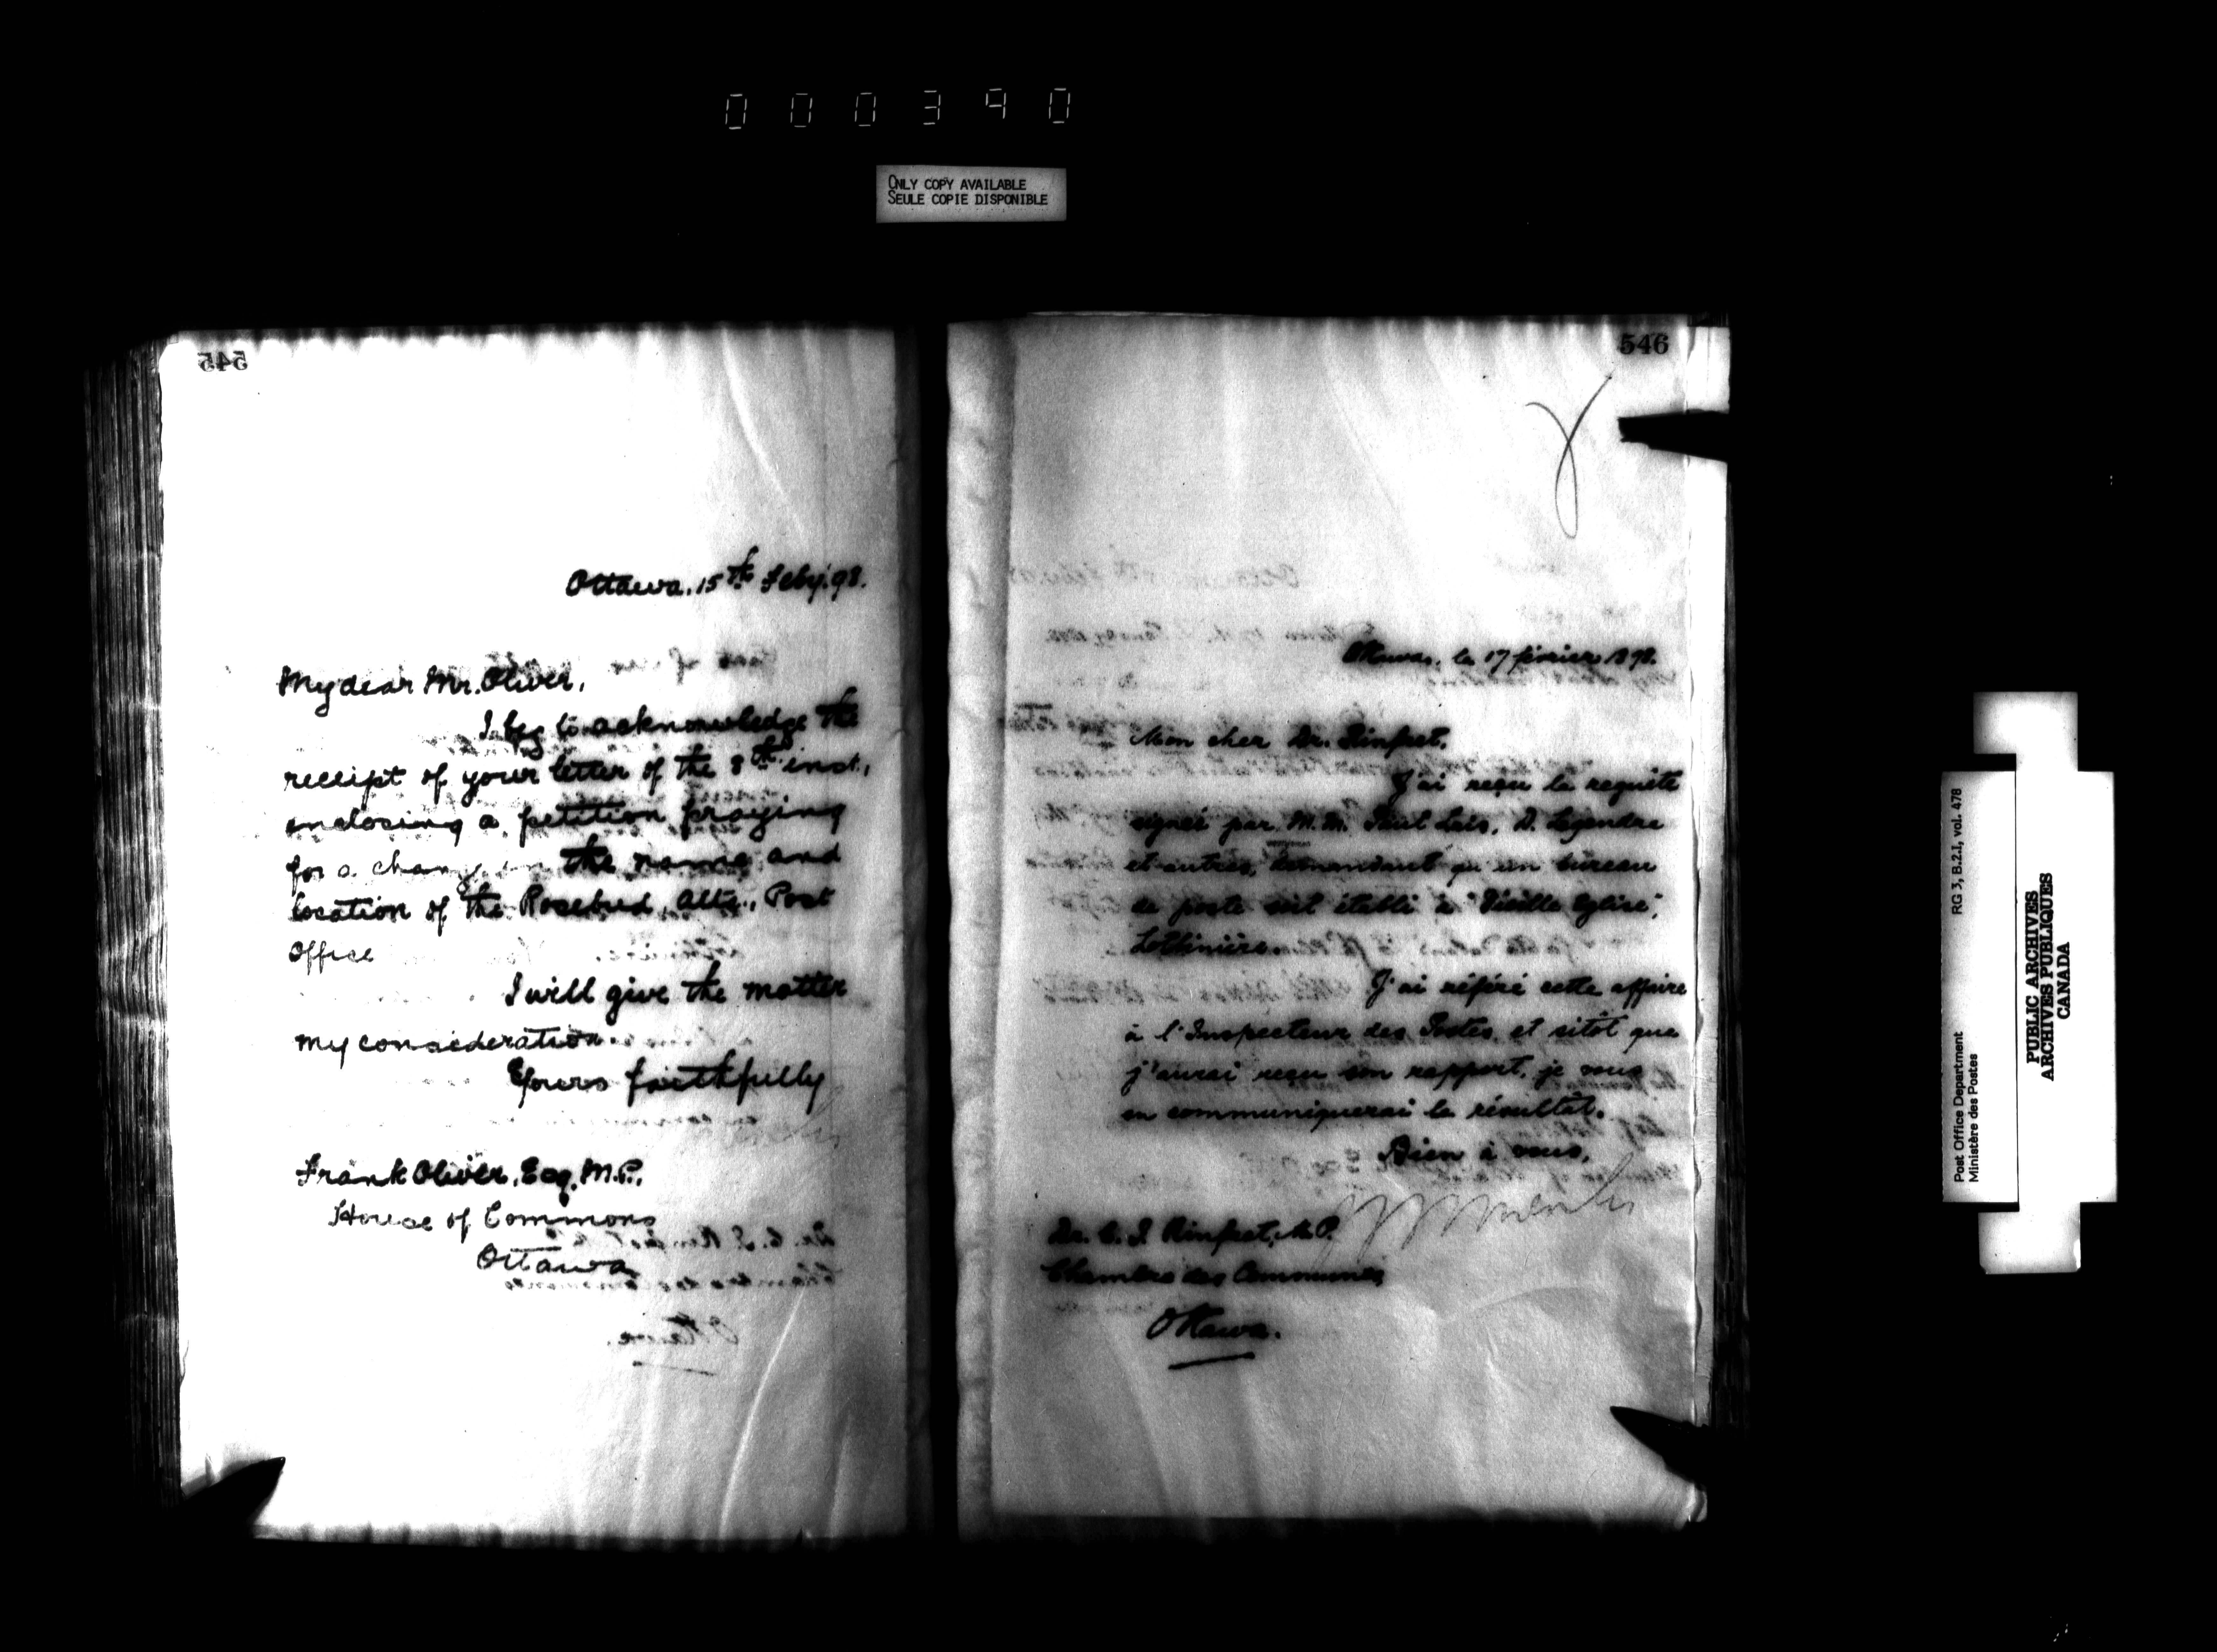 000390
ONLY COPY AVAILABLE
SEULE COPIE DISPONIBLE
545
Ottawa, 15th Feby. 98.
My dear Mr. Oliver,
I beg to acknowledge the
receipt of your letter of the 8th inst.,
enclosing a petition praying
for a change in the name and
location of the Rosebud, Alta., Post
Office
I will give the matter
my consideration.
Yours faithfully
Frank Oliver, Esq. M.P.,
House of Commons
Ottawa
546
Ottawa, le 17 février 1898.
Mon cher Dr. Rinfret,
J'ai reçu la requête
signée par M.M. Paul Lais, D. Legendre
et autres, demandant qu'un bureau
de poste soit établi à "Vieille Eglise",
Lotbinière.
J'ai référé cette affaire
à l'Inspecteur des Postes, et sitôt que
j'aurai reçu son rapport, je vous
en communiquerai le résultat.
Bien à vous,
Dr. C. I. Rinfret, M.P.
Chambre des Communes,
Ottawa.
Post Office Department
Ministère des Postes
RG 3, B.2.I, vol. 478
PUBLIC ARCHIVES
ARCHIVES PUBLIQUES
CANADA